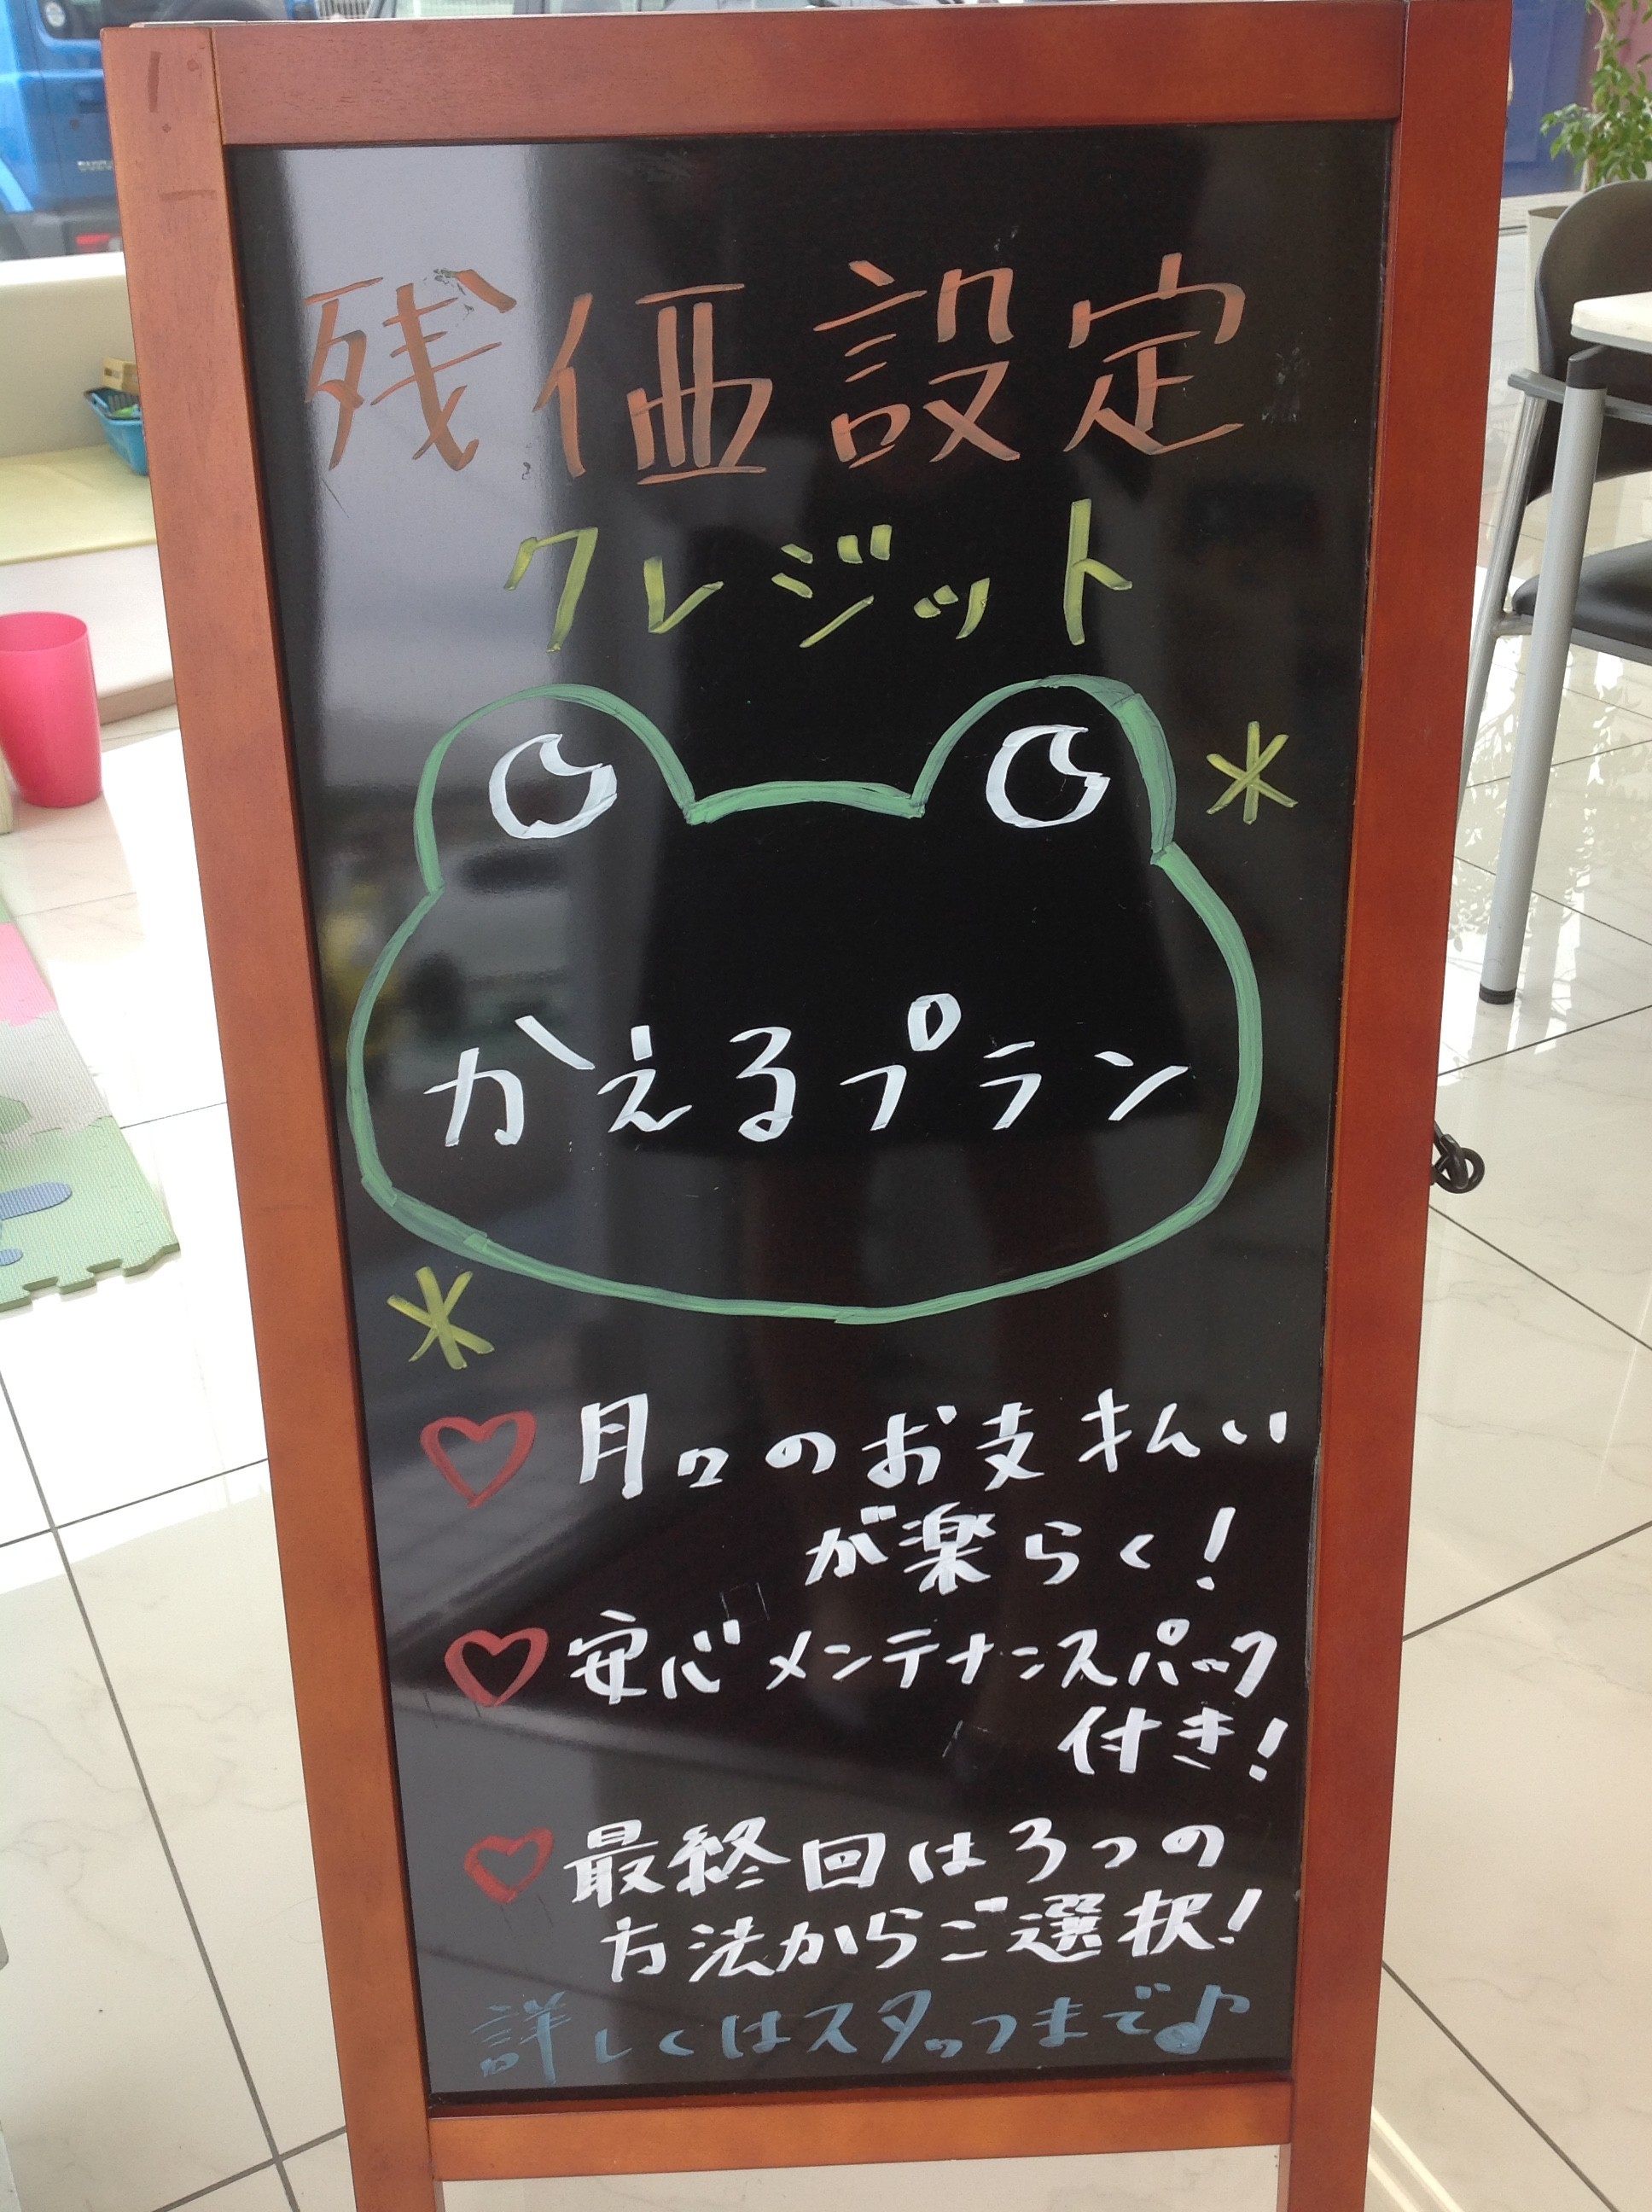 残価設定
クレジット
かえるプラン
月々のお支払い
が楽らく!
安心メンテナンスパック
付き!
最終回は3つの
方法からご選択!
詳しくはスタッフまで♪